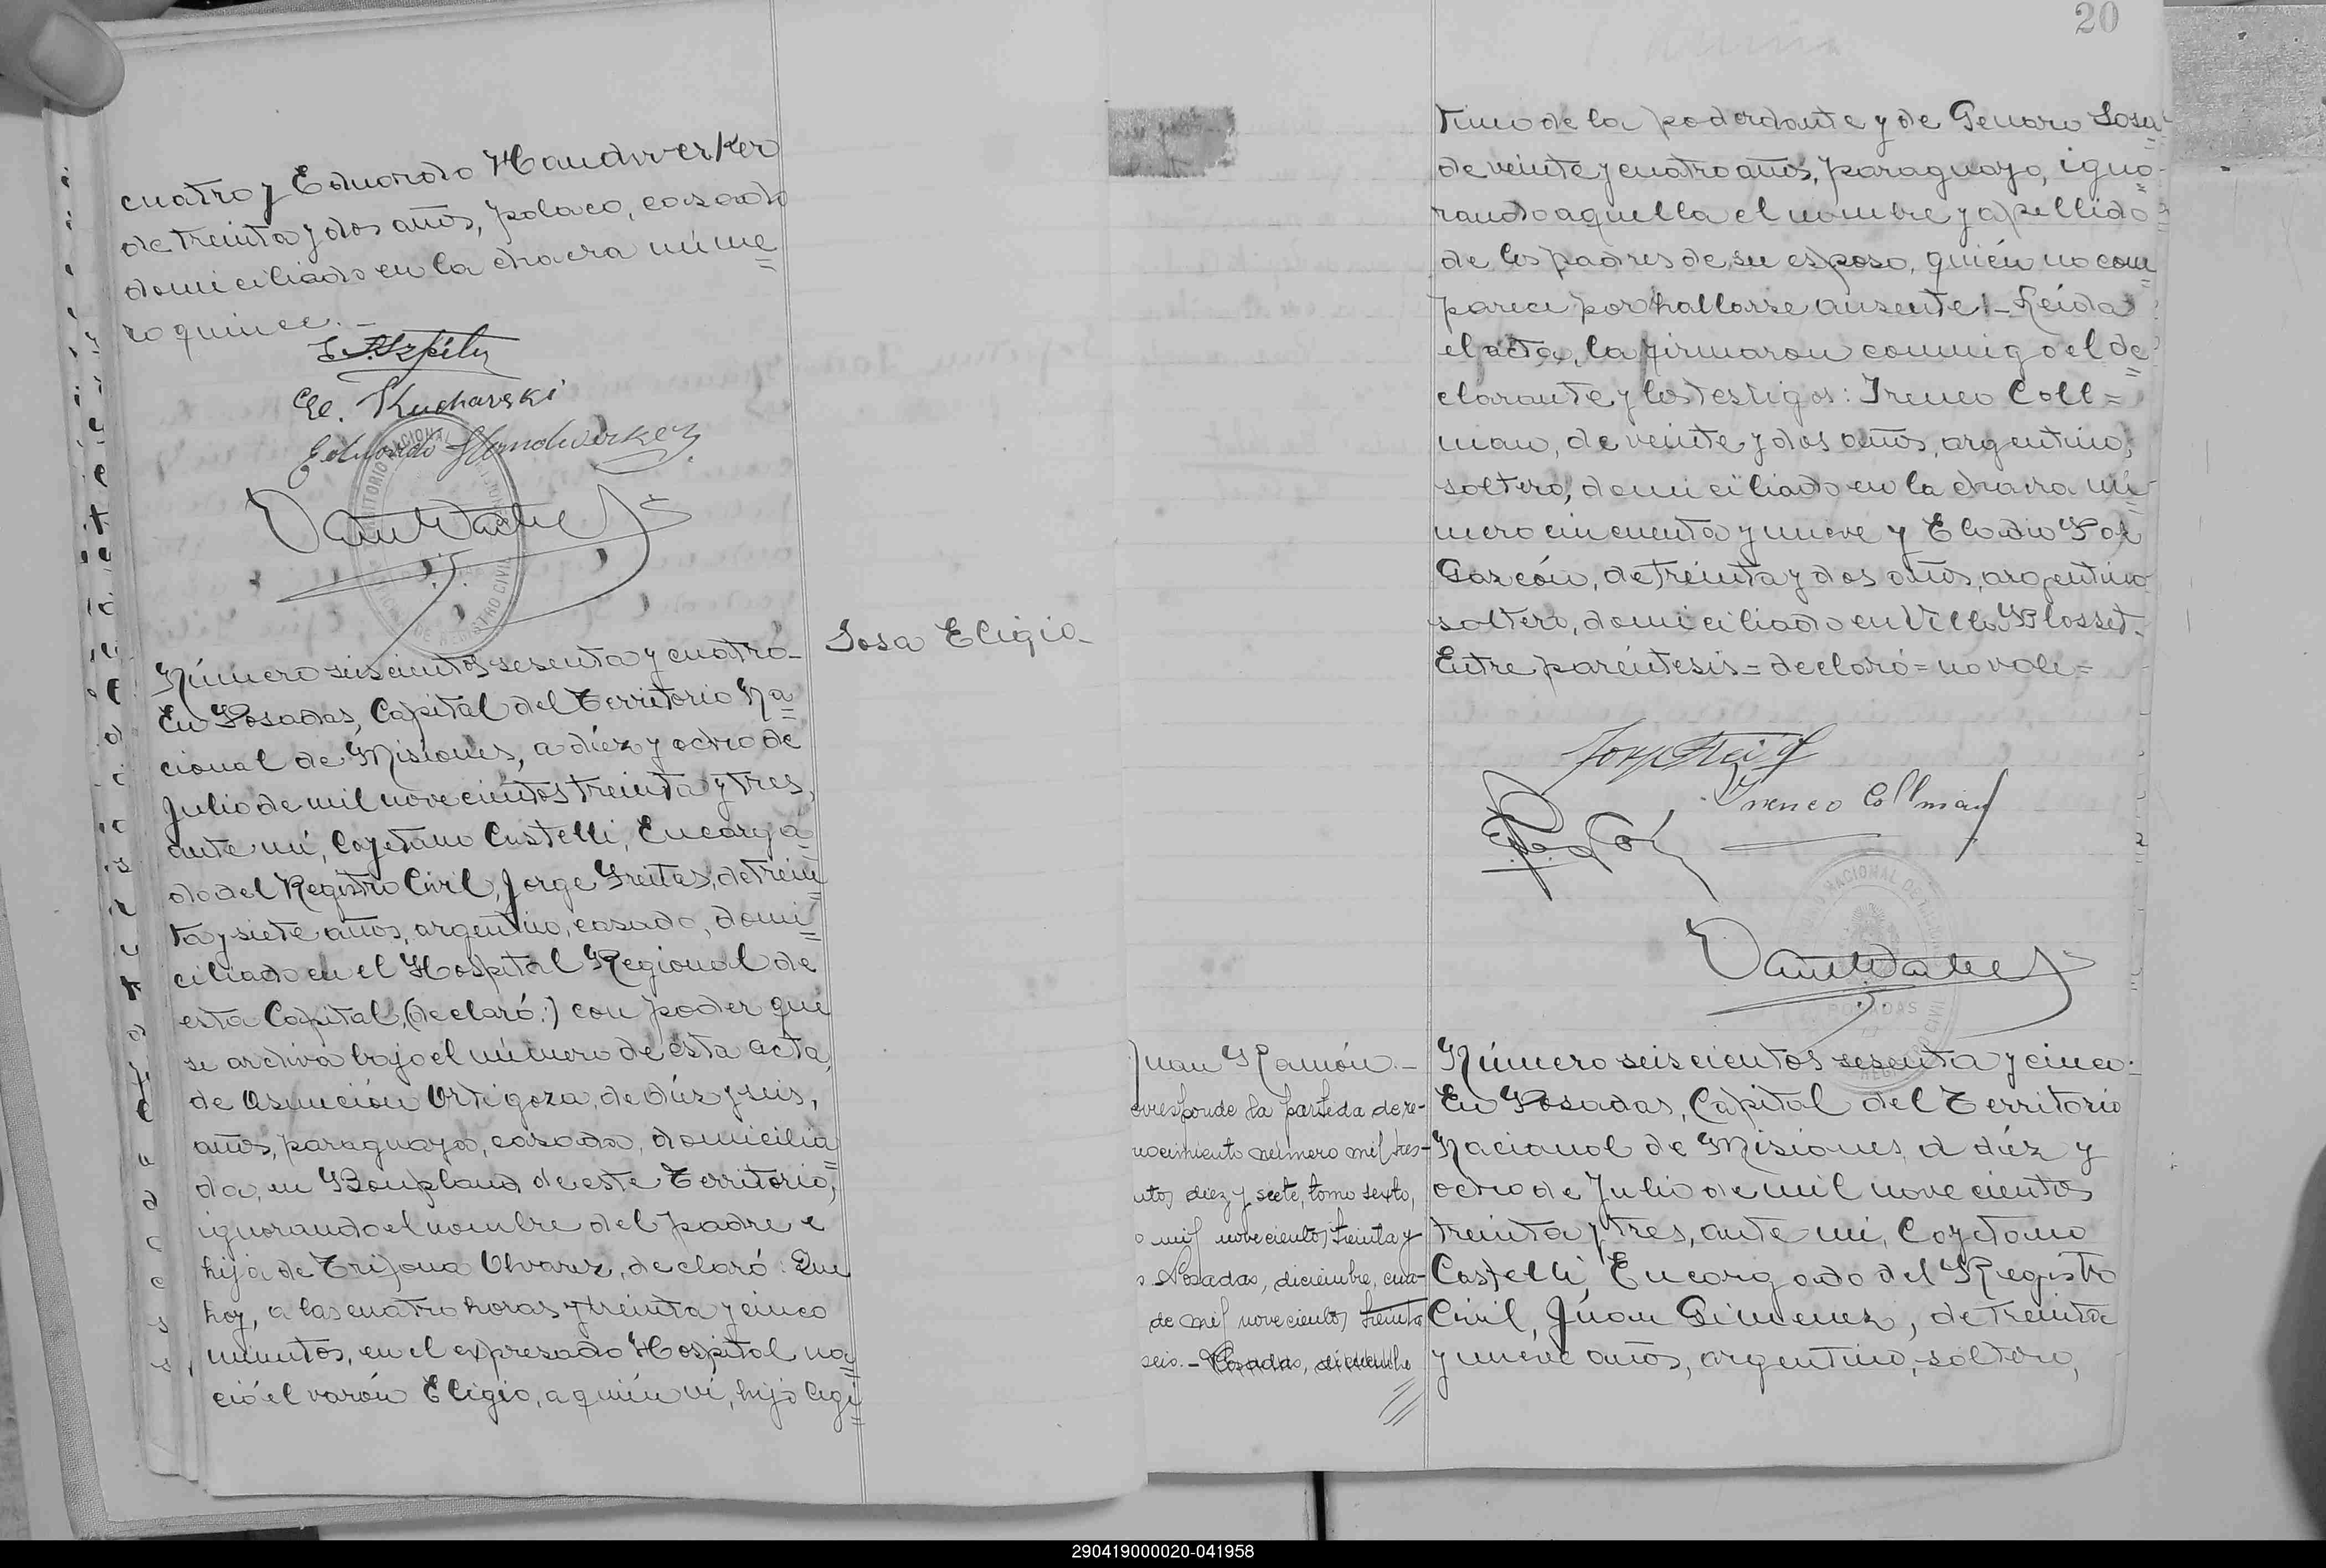 cuatro y Eduardo Handwerker
de treinta y dos años, polaco, casado
domiciliado en la chacra núme
ro quince.-
E. Kucharski
Eduardo Handwerker
TERRITORIO NACIONAL
OFICINA DE REGISTRO CIVIL
Sosa Eligio-
Número seiscientos sesenta y cuatro-
En Posadas, Capital del Territorio Na
cional de Misiones, a diéz y ocho de
Julio de mil novecientos treinta y tres,
ante mí, Cayetano Castelli, Encarga
do del Registro Civil, Jorge Freites, de trein
ta y siete años, argentino, casado, domi
ciliado en el Hospital Regional de
esta Capital, (declaró:) con poder que
se archiva bajo el número de ésta acta,
de Asunción Ortigoza, de diéz y seis,
años, paraguaya, casada, domicilia
da, en Bonpland de este Territorio,
ignorando el nombre del padre e
hija de Trifona Alvarez, declaró: Que
hoy, a las cuatro horas y treinta y cinco
minutos, en el expresado Hospital na
ció el varón Eligio, a quién ví, hijo legí
20
timo de la poderdante y de Genaro Sosa
de veinte y cuatro años, paraguayo, igno
rando aquella el nombre y apellido
de los padres de su esposo, quién no com
parece por hallarse ausente.- Leída
el acta, la firmaron conmigo el de
clarante y los testigos: Ireneo Coll=
man, de veinte y dos años, argentino,
soltero, domiciliado en la chacra nú
mero cincuenta y nueve y Eladio Pol
Garzón, de treinta y dos años, argentino
soltero, domiciliado en Villa Blosset.
Entre paréntesis= declaró= no vale=
Ireneo Collman
POSADAS
Juan Ramón.-
orresponde la partida de re-
nocimiento número mil tres-
ntos diez y siete, tomo sexto,
o mil novecientos treinta y
s. Posadas, diciembre, cua-
de mil novecientos treinta
seis.- Posadas, diciembre
Número seiscientos sesenta y cinco:
En Posadas, Capital del Territorio
Nacional de Misiones, a diéz y
ocho de Julio de mil novecientos
treinta y tres, ante mi, Cayetano
Castelli, Encargado del Registro
Civil, Júan Gimenez, de treinta
y nueve años, argentino, soltero,
290419000020-041958